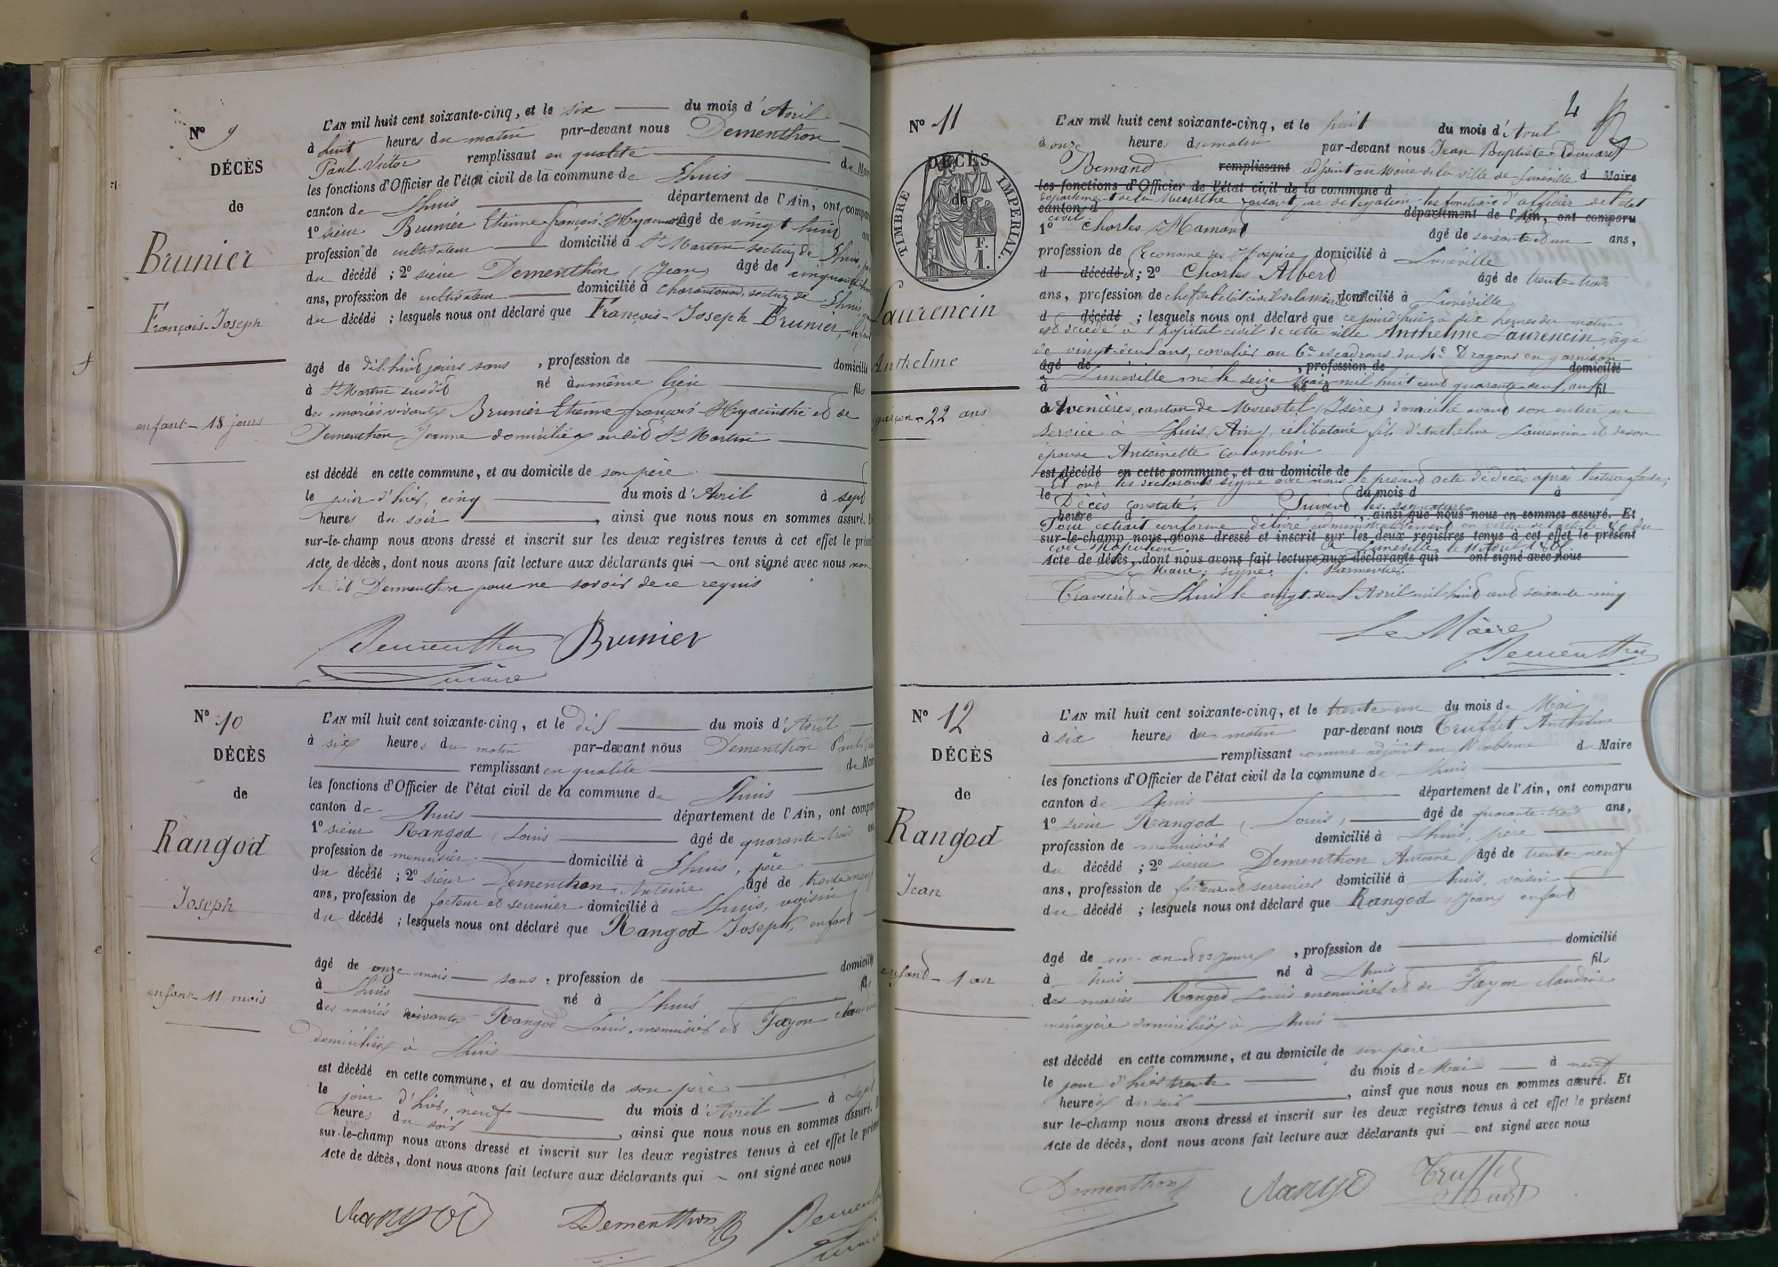 N° 9
DÉCÈS
de
Brunier
François-Joseph
enfant - 18 jours
L'AN mil huit cent soixante-cinq, et le six du mois d'Avril
à huit heures du matin par-devant nous Dementhon
Paul Victor remplissant en qualité de Maire
les fonctions d'Officier de l'état civil de la commune de Lhuis
canton de Lhuis département de l'Ain, ont comparu
1° sieur Brunier Etienne françois Hyacinthe âgé de vingt huit ans
profession de cultivateur domicilié à St Martin section de Lhuis, père
du décédé ; 2° sieur Dementhon (Jean) âgé de cinquante
ans, profession de cultivateur domicilié à section de Lhuis,
du décédé ; lesquels nous ont déclaré que François-Joseph Brunier, enfant
âgé de dix huit jours sans , profession de domicilié
à St Martin susdit né au même lieu fils
des mariés vivants Brunier Etienne françois Hyacinthe et de
Dementhon Jeanne domiciliés audit St Martin
est décédé en cette commune, et au domicile de son père
le jour d'hier, cinq du mois d'Avril à sept
heures du soir , ainsi que nous nous en sommes assuré. Et
sur-le-champ nous avons dressé et inscrit sur les deux registres tenus à cet effet le présent
Acte de décès, dont nous avons fait lecture aux déclarants qui ont signé avec nous non
le dit Dementhon pour ne savoir de ce requis
Dementhon Brunier
maire
N° 10
DÉCÈS
de
Rangod
Joseph
enfant - 11 mois
L'AN mil huit cent soixante-cinq, et le dix du mois d'Avril
à six heures du matin par-devant nous Dementhon Paul Victor
remplissant en qualité de Maire
les fonctions d'Officier de l'état civil de la commune de Lhuis
canton de Lhuis département de l'Ain, ont comparu
1° sieur Rangod (Louis) âgé de quarante trois ans
profession de menuisier domicilié à Lhuis, père
du décédé ; 2° sieur Dementhon Antoine âgé de trente neuf
ans, profession de facteur et serrurier domicilié à Lhuis, voisin
du décédé ; lesquels nous ont déclaré que Rangod Joseph, enfant
âgé de onze mois sans , profession de domicilié
à Lhuis né à Lhuis fils
des mariés vivants Rangod Louis, menuisier et Fayon
domiciliés à Lhuis
est décédé en cette commune, et au domicile de son père
le jour d'hier, neuf du mois d'Avril à sept
heures du soir , ainsi que nous nous en sommes assuré. Et
sur-le-champ nous avons dressé et inscrit sur les deux registres tenus à cet effet le présent
Acte de décès, dont nous avons fait lecture aux déclarants qui ont signé avec nous
Rangod Dementhon Dementhon
maire
4
N° 11
DÉCÈS
de
TIMBRE IMPÉRIAL
1 F.
Laurencin
Anthelme
garçon - 22 ans
L'AN mil huit cent soixante-cinq, et le huit du mois d'Avril
à onze heures du matin par-devant nous Jean Baptiste Edouard
Bernard remplissant adjoint au Maire de la ville de Lunéville d Maire
les fonctions d'Officier de l'état civil de la commune d
département de la Meurthe faisant par délégation les fonctions d'officier de l'état
canton d département de l'Ain, ont comparu
civil
1° Charles Hamant âgé de soixante et un ans,
profession de Econome de l'Hospice domicilié à Lunéville
d décédé ; 2° Charles Albert âgé de trente trois
ans, profession de chef de l'état civil de la mairie domicilié à Lunéville
d décédé ; lesquels nous ont déclaré que cejourd'hui à dix heures du matin
est décédé à l'hôpital civil de cette ville Anthelme Laurencin, âgé
de vingt deux ans, cavalier au 6e escadrons du 4e Dragons en garnison
âgé de , profession de domicilié
à Lunéville né le seize Mars mil huit cent quarante deux,
à né à fil
à Avenières, canton de Morestel (Isère) domicilié avant son entrée au
service à Lhuis (Ain), célibataire fils d'Anthelme Laurencin et de son
épouse Antoinette Colombin
est décédé en cette commune, et au domicile de
Et ont les déclarants signé avec nous le présent acte de décès après lecture faite
le du mois d à
Décès constaté. Suivent les signatures
heure d , ainsi que nous nous en sommes assuré. Et
Pour extrait conforme délivré administrativement en vertu de l'article du
sur-le-champ nous avons dressé et inscrit sur les deux registres tenus à cet effet le présent
code Napoléon. à Lunéville le 11 Avril 1865
Acte de décès, dont nous avons fait lecture aux déclarants qui ont signé avec nous
Le Maire, signé,
Transcrit à Lhuis le vingt Avril mil huit cent soixante cinq
Le Maire
Dementhon
N° 12
DÉCÈS
de
Rangod
Jean
enfant - 1 an
L'AN mil huit cent soixante-cinq, et le trente un du mois de Mai
à six heures du matin par-devant nous Truffet Anthelme
remplissant comme adjoint en l'absence du Maire
les fonctions d'Officier de l'état civil de la commune de Lhuis
canton de Lhuis département de l'Ain, ont comparu
1° sieur Rangod (Louis) âgé de quarante trois ans,
profession de menuisier domicilié à Lhuis, père
du décédé ; 2° sieur Dementhon Antoine âgé de trente neuf
ans, profession de facteur et serrurier domicilié à Lhuis, voisin
du décédé ; lesquels nous ont déclaré que Rangod (Jean) enfant
âgé de un an et jours , profession de domicilié
à Lhuis né à Lhuis fil
des mariés Rangod Louis menuisier et de Fayon Claudine
ménagère domiciliés à Lhuis
est décédé en cette commune, et au domicile de son père
le jour d'hier trente du mois de Mai à neuf
heures du soir , ainsi que nous nous en sommes assuré. Et
sur le-champ nous avons dressé et inscrit sur les deux registres tenus à cet effet le présent
Acte de décès, dont nous avons fait lecture aux déclarants qui ont signé avec nous
Dementhon Rangod Truffet